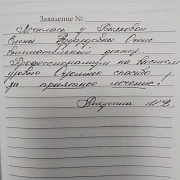 Заявление №
Лечилась у Вилковой
Елены Эдуардовны Очень
внимательный доктор.
Профессионализм на высшем
уровне Огромное спасибо
за приятное лечение!